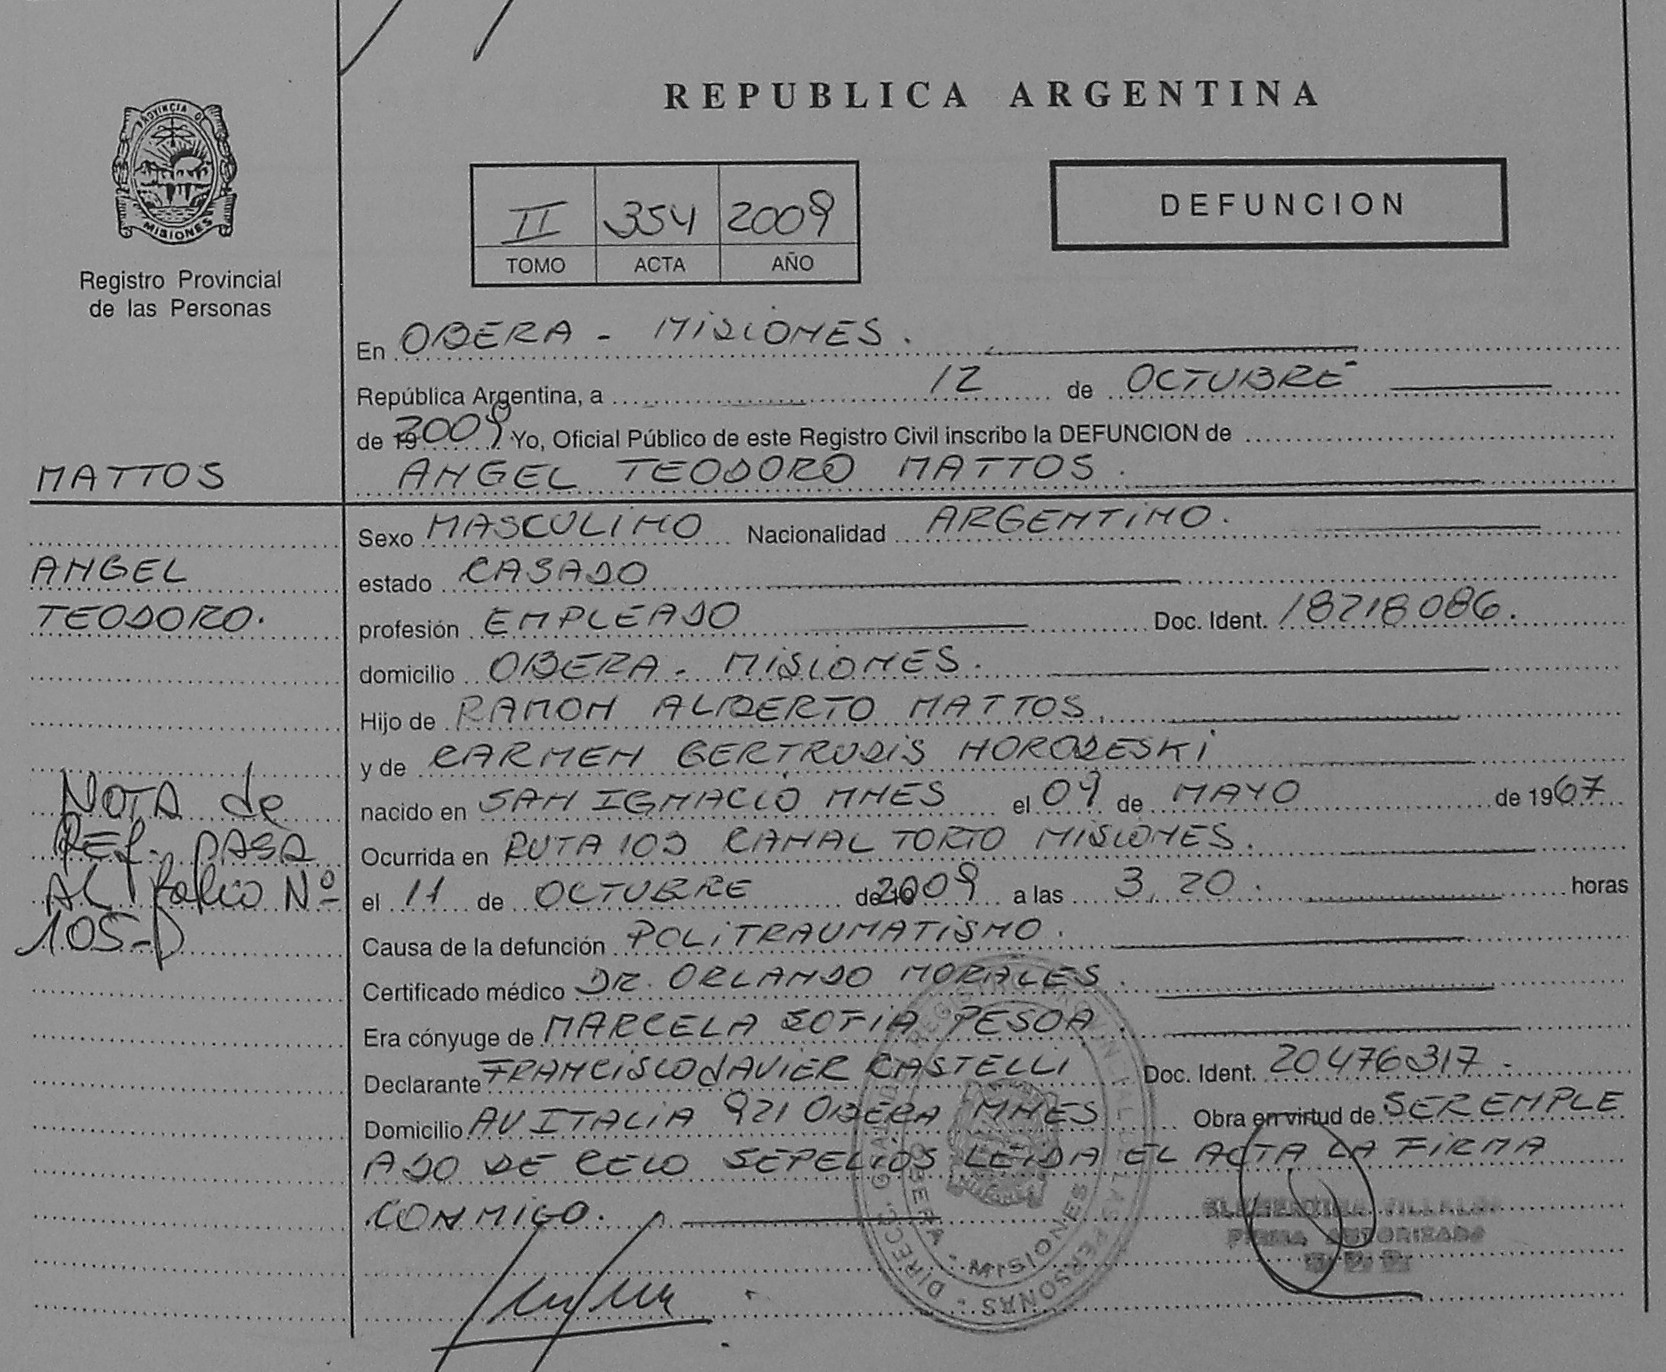 REPUBLICA ARGENTINA
PROVINCIA DE
MISIONES
Registro Provincial
de las Personas
II 354 2009
TOMO ACTA AÑO
DEFUNCION
En OBERA - MISIONES.
República Argentina, a 12 de OCTUBRE
de 19 2009 Yo, Oficial Público de este Registro Civil inscribo la DEFUNCION de
MATTOS
ANGEL TEODORO MATTOS.
Sexo MASCULINO Nacionalidad ARGENTINO.
ANGEL
estado CASADO
TEODORO.
profesión EMPLEADO Doc. Ident. 18218086.
domicilio OBERA - MISIONES.
Hijo de RAMON ALBERTO MATTOS
y de CARMEN GERTRUDIS HORODESKI
nacido en SAN IGNACIO MNES el 09 de MAYO de 1967
NOTA de
REF. PASA
AL Folio Nº
105-D
Ocurrida en RUTA 103 CANAL TORTO MISIONES.
el 11 de OCTUBRE de 2009 a las 3,20. horas
Causa de la defunción POLITRAUMATISMO.
Certificado médico DR. ORLANDO MORALES.
Era cónyuge de MARCELA SOFIA PESOA.
Declarante FRANCISCO JAVIER CASTELLI Doc. Ident. 20476317.
Domicilio AV ITALIA 921 OBERA MNES Obra en virtud de SER EMPLE
ADO DE CELO SEPELIOS LEIDA EL ACTA LA FIRMA
CONMIGO.
OBERA - MISIONES
VILLALBA
FIRMA AUTORIZADA